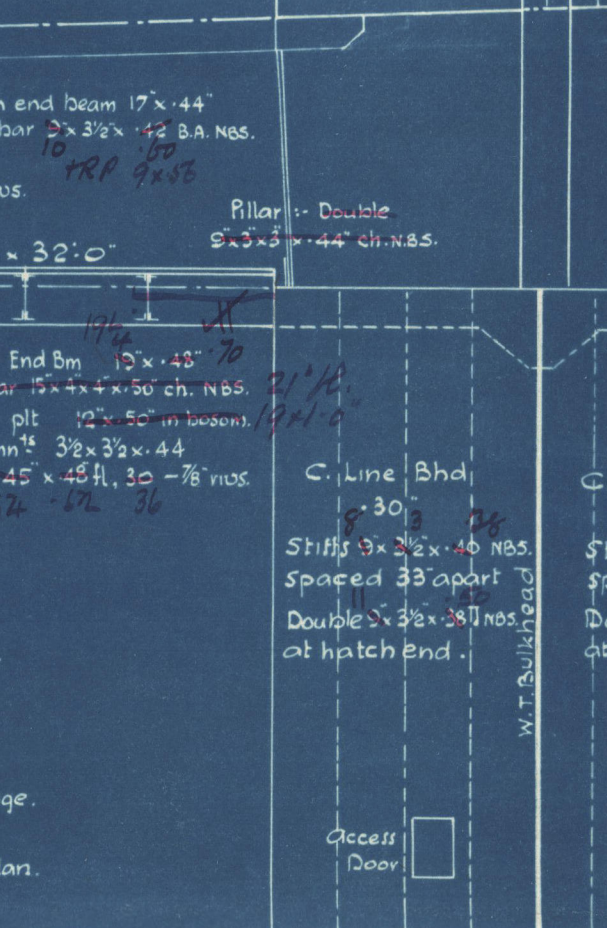 end beam 17"x .44"
bar 9"x 3½"x .42 B.A. NBS.
10 .60
+RP 9x56
Pillar :- Double
9"x3"x3"x.44" ch. N.B.S.
x 32'.0"
19¼ .70
End Bm 19"x .48"
15"x4"x4"x.50" ch. NBS.
plt 12"x.50" in bosom. 19x1.0"
3½x3½x.44
45"x.48 fl, 30 -⅞" rivs.
36
C. Line Bhd
.30"
8 3 38
Stiffs 9"x 3½"x .40 NBS.
spaced 33" apart
11 .50
Double 9"x 3½"x .38" NBS.
at hatch end.
W.T. Bulkhead
Access
Door